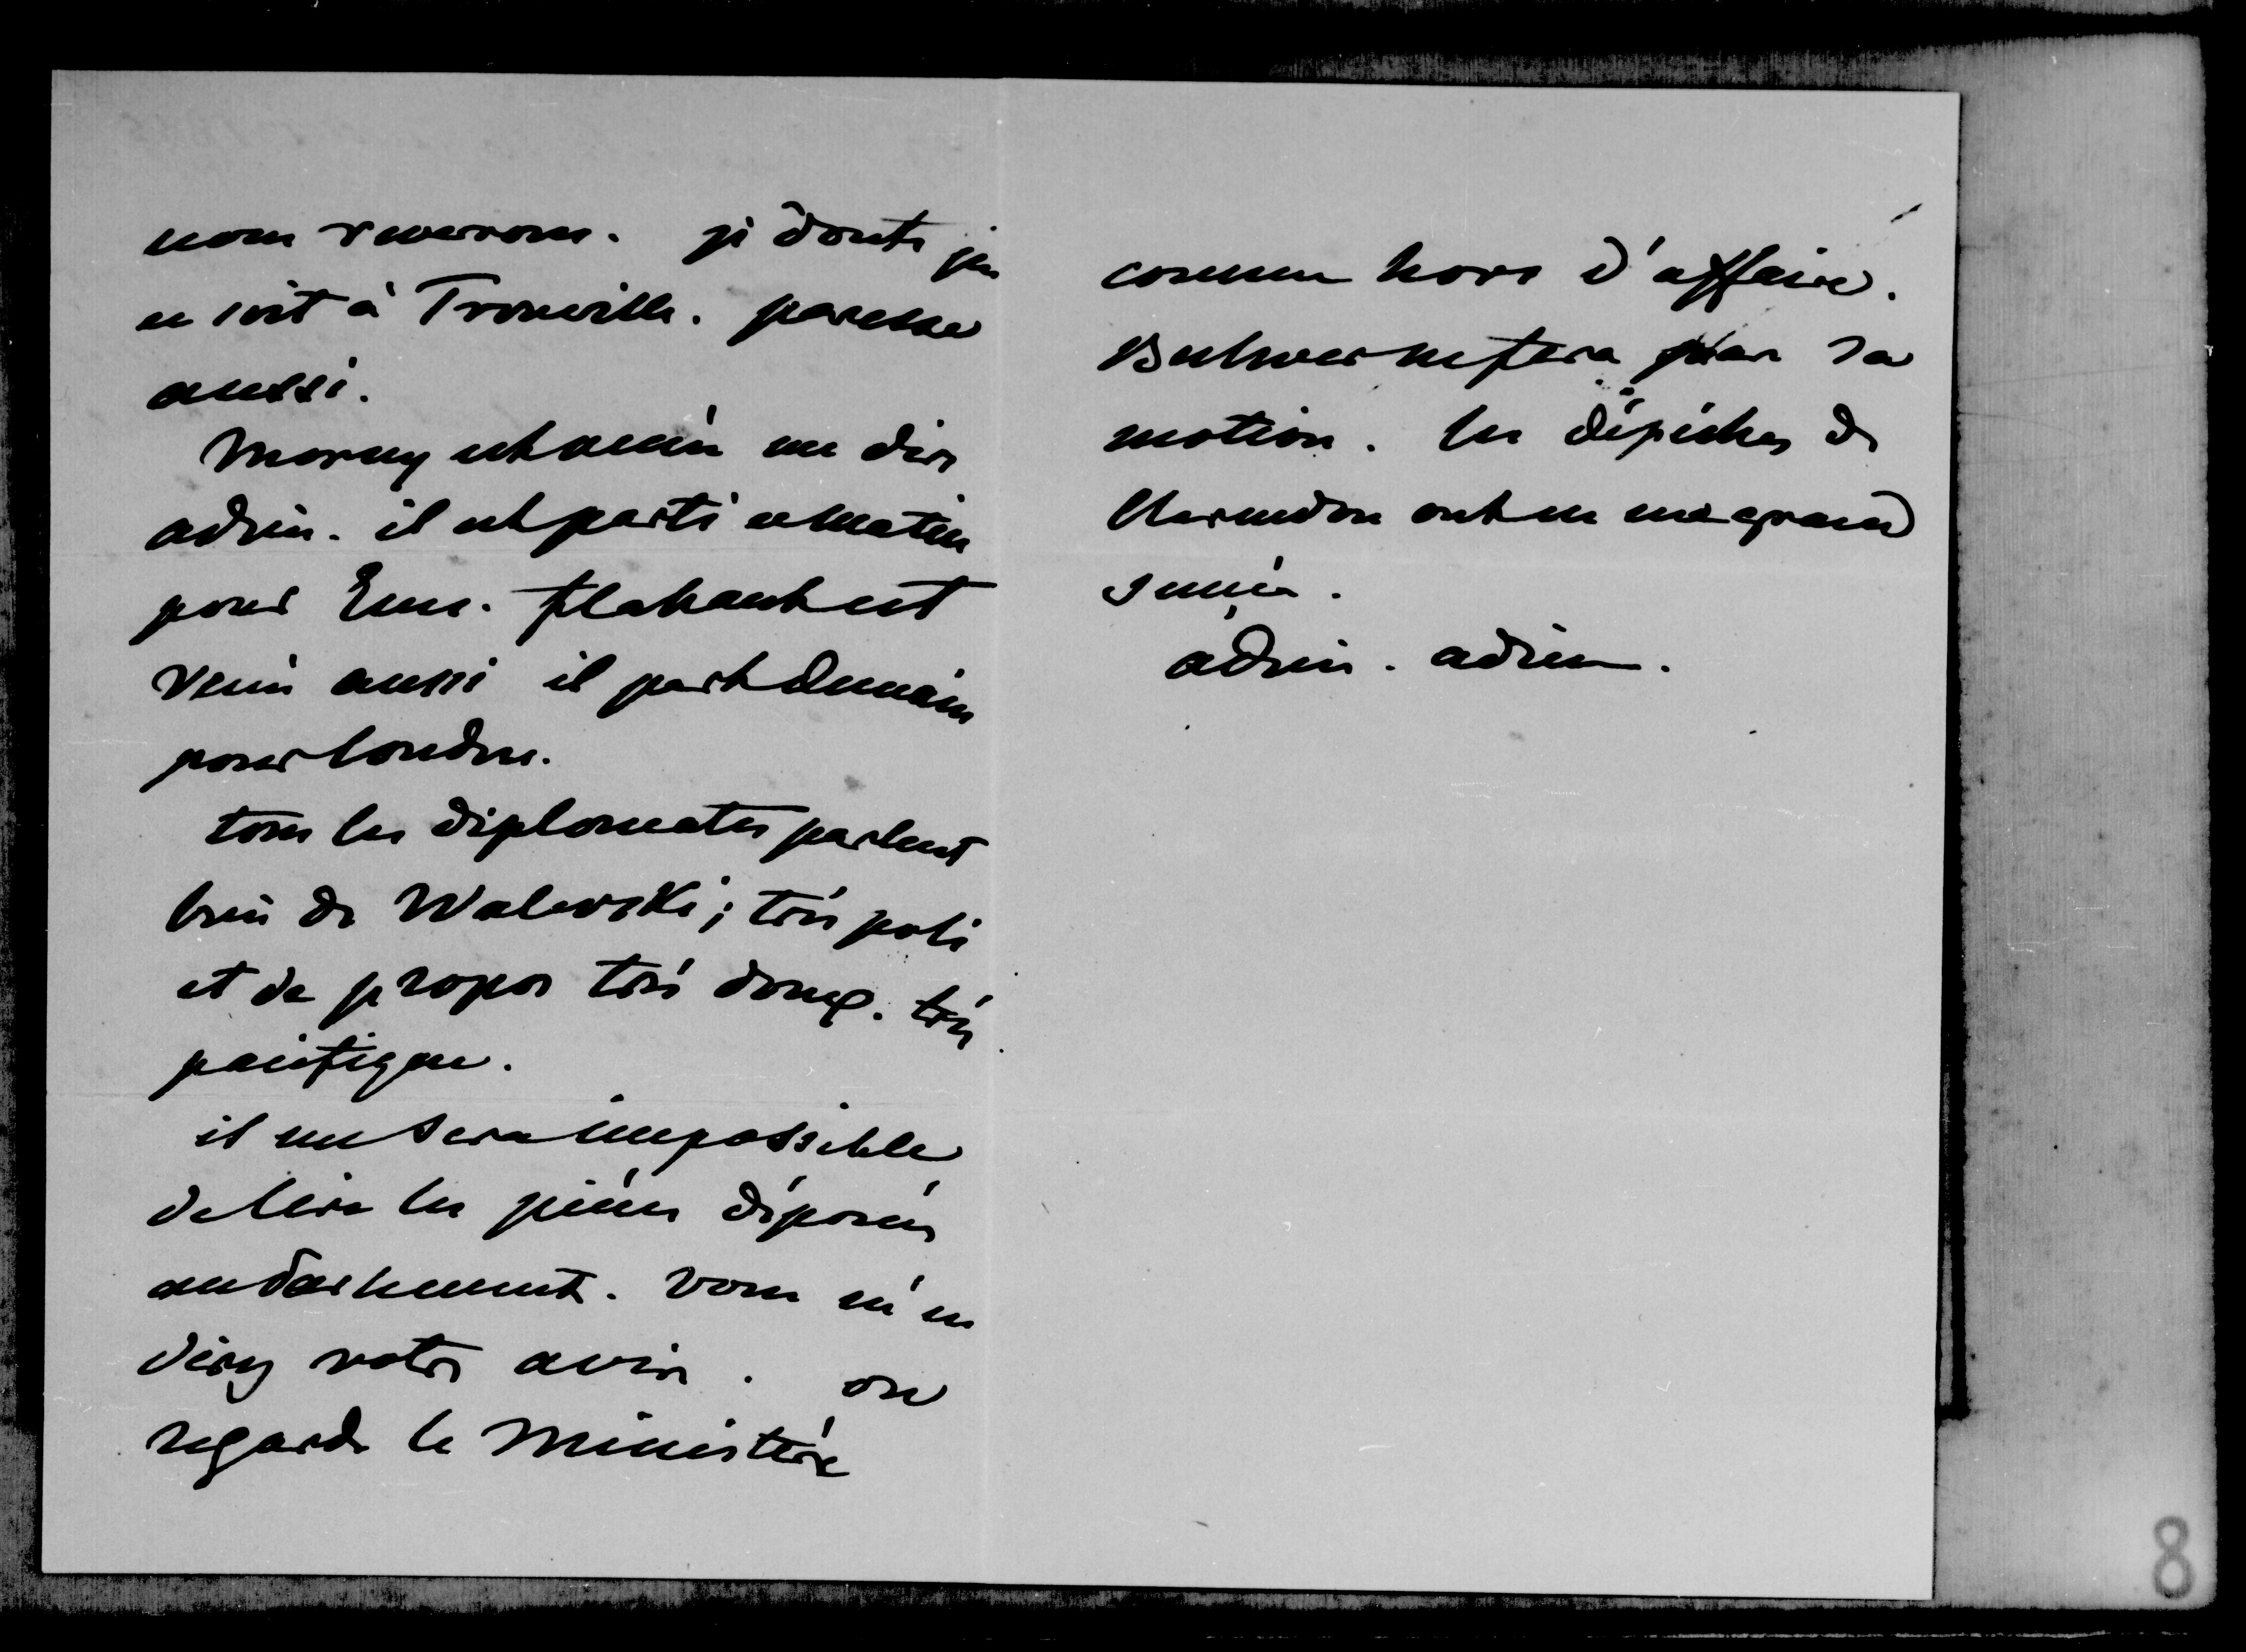 nous reverrons. je doute que
ce soit à Trouville. paresse
aussi.
Morny est venu me dire
adieu. il est parti ce matin
pour Ems. flahault est
venu aussi il part demain
pour londres.
tous les diplomates parlent
bien de Walewski; très poli
et de propos très doux. très
pacifique.
il me sera impossible
de lire les pièces déposées
au parlement. vous m'en
direz votre avis. on
regarde le Ministère
comme hors d'affaire.
Bulwer ne fera pas sa
motion. les dépêches de
Clarendon ont eu un grand
succès.
adieu. adieu.
8